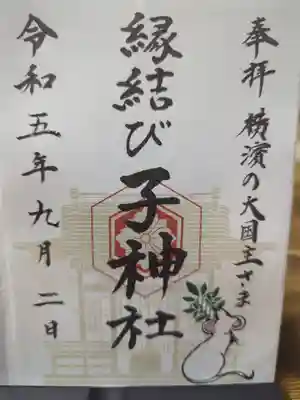 奉拝 横濱の大国主さま
縁結び子神社
令和五年九月二日